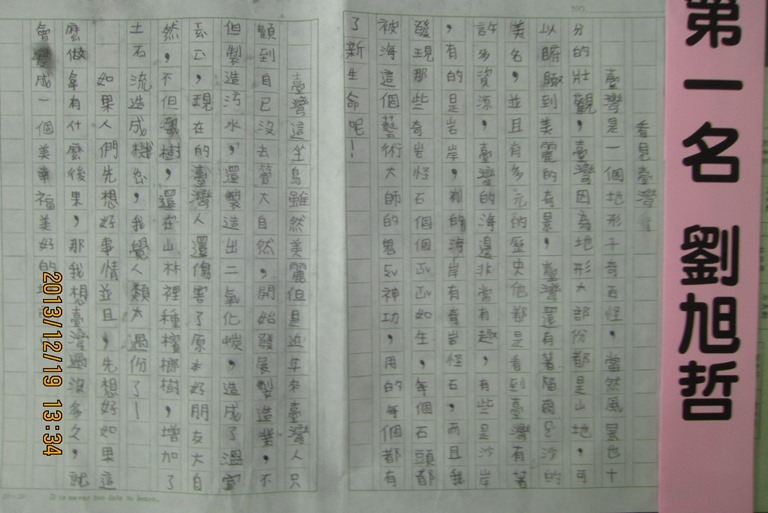 第一名 劉旭哲
看見臺灣
臺灣是一個地形千奇百怪,當然風景也十
分的壯觀,臺灣因為地形大部份都是山地,可
以瞰到美麗的奇景,臺灣還有著爾沙的
美名,並且有多元的歷史他都是看到臺灣有著
許多資源,臺灣的海邊非常有趣,有些是沙岸
,有的是岩岸,有的海岸有奇岩怪石,而且我
發現那些奇岩怪石個個如生,每個石頭都
被海這個藝術大師的鬼斧神功,用的每個都有
了新生命呢!
臺灣這坐島雖然美麗但是近年來臺灣人只
顧到自己沒去管大自然,開始發展製造業,不
個製造污水,還製造出二氧化碳,造成了溫室
,現在的臺灣人還傷害了原本好朋友大自
然,不但樹,還在山林裡種檳榔樹,增加了
土石流造成機會,我覺人類太過份了!
如果人們先想好事情並且,先想好如果這
麼做會有什麼後果,那我想臺灣過沒多久,就
會變成一個美幸福美好的地
2013/12/19 13:34